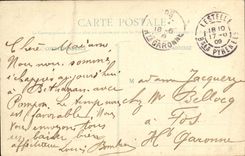 CARTE POSTALE
LESTELLE
18 10
17 -6
09
Bses PYRENEES
18 -6
HTE GARONNE
Chère Madame
Nous nous sommes
échappés aujourd'hui
à Bétharram, avec
Pompon. Le temps nous
est favorable. Nous
vous envoyons tous
un baiser bien
affectueux Louis
Madame Jacquery
chez Mr Bellocq
à Fos
Hte Garonne